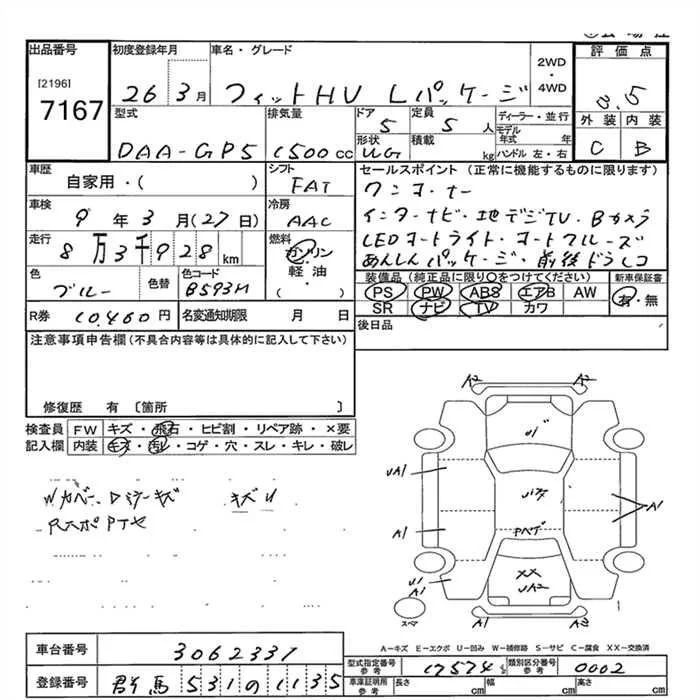 出品番号
[2196]
7167
初度登録年月
26 3月
車名・グレード
フィットHV Lパッケージ
2WD
・
4WD
評価点
3.5
外装 内装
C B
型式
DAA-GP5
排気量
1500cc
ドア
5
定員
5人
形状
WG
積載
kg
ディーラー・並行
モデル年式 年
ハンドル 左・右
車歴
自家用・( )
シフト
FAT
車検
9年3月(27日)
冷房
AAC
走行
8万3千928km
燃料
ガソリン
・
軽・油
( )
色
ブルー
色替
色コード
B593M
R券 10,460円
名変通知期限 月 日
セールスポイント (正常に機能するものに限ります)
ワンオーナー
インターナビ・地デジTV・Bカメラ
LEDオートライト・オートクルーズ
あんしんパッケージ・前後ドラレコ
装備品(純正品に限り○をつけてください)
新車保証書
PS PW ABS エアB AW
SR ナビ TV カワ
有・無
後日品
注意事項申告欄(不具合内容等は具体的に記入して下さい)
修復歴 有 〔箇所 〕
検査員
記入欄
FW キズ・飛石・ヒビ割・リペア跡・×要
内装 キズ・汚レ・コゲ・穴・スレ・キレ・破レ
キズU
A2 A2
U1
UA1
A1
A1
U1
A1
XX
UA2
A1 A2
スペア
A-キズ E-エクボ U-凹み W-補修跡 S-サビ C-腐食 XX-交換済
車台番号 3062337
登録番号 群馬 531 の 1135
型式指定番号
参考
17574
類別区分番号
参考
0002
車庫証明用
参考
長さ cm
幅 cm
高さ cm